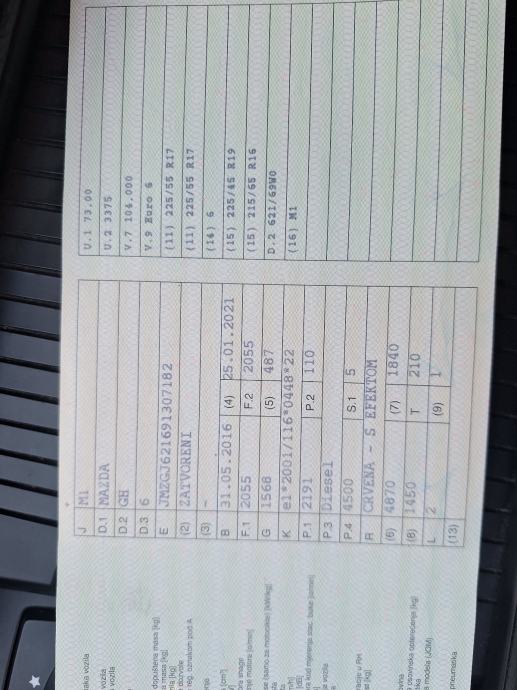 J M1
D.1 MAZDA
D.2 GH
D.3 6
E JMZGJ621691307182
(2) ZATVORENI
(3) –
B 31.05.2016 (4) 25.01.2021
F.1 2055 F.2 2055
G 1568 (5) 487
K e1*2001/116*0448*22
P.1 2191 P.2 110
P.3 Diesel
P.4 4500 S.1 5
R CRVENA - S EFEKTOM
(6) 4870 (7) 1840
(8) 1450 T 210
L 2 (9) 1
(13)
U.1 73,00
U.2 3375
V.7 104,000
V.9 Euro 6
(11) 225/55 R17
(11) 225/55 R17
(14) 6
(15) 225/45 R19
(15) 215/65 R16
D.2 621/69W0
(16) M1
vozila
vozila
vozila
masa [kg]
masa [kg]
reg. oznakom pod A
snage
mjerenja stac. buke [o/min]
vozila
u RH
[kg]
osovinska opterećenja [kg]
mjesta (JOM)
pneumatika